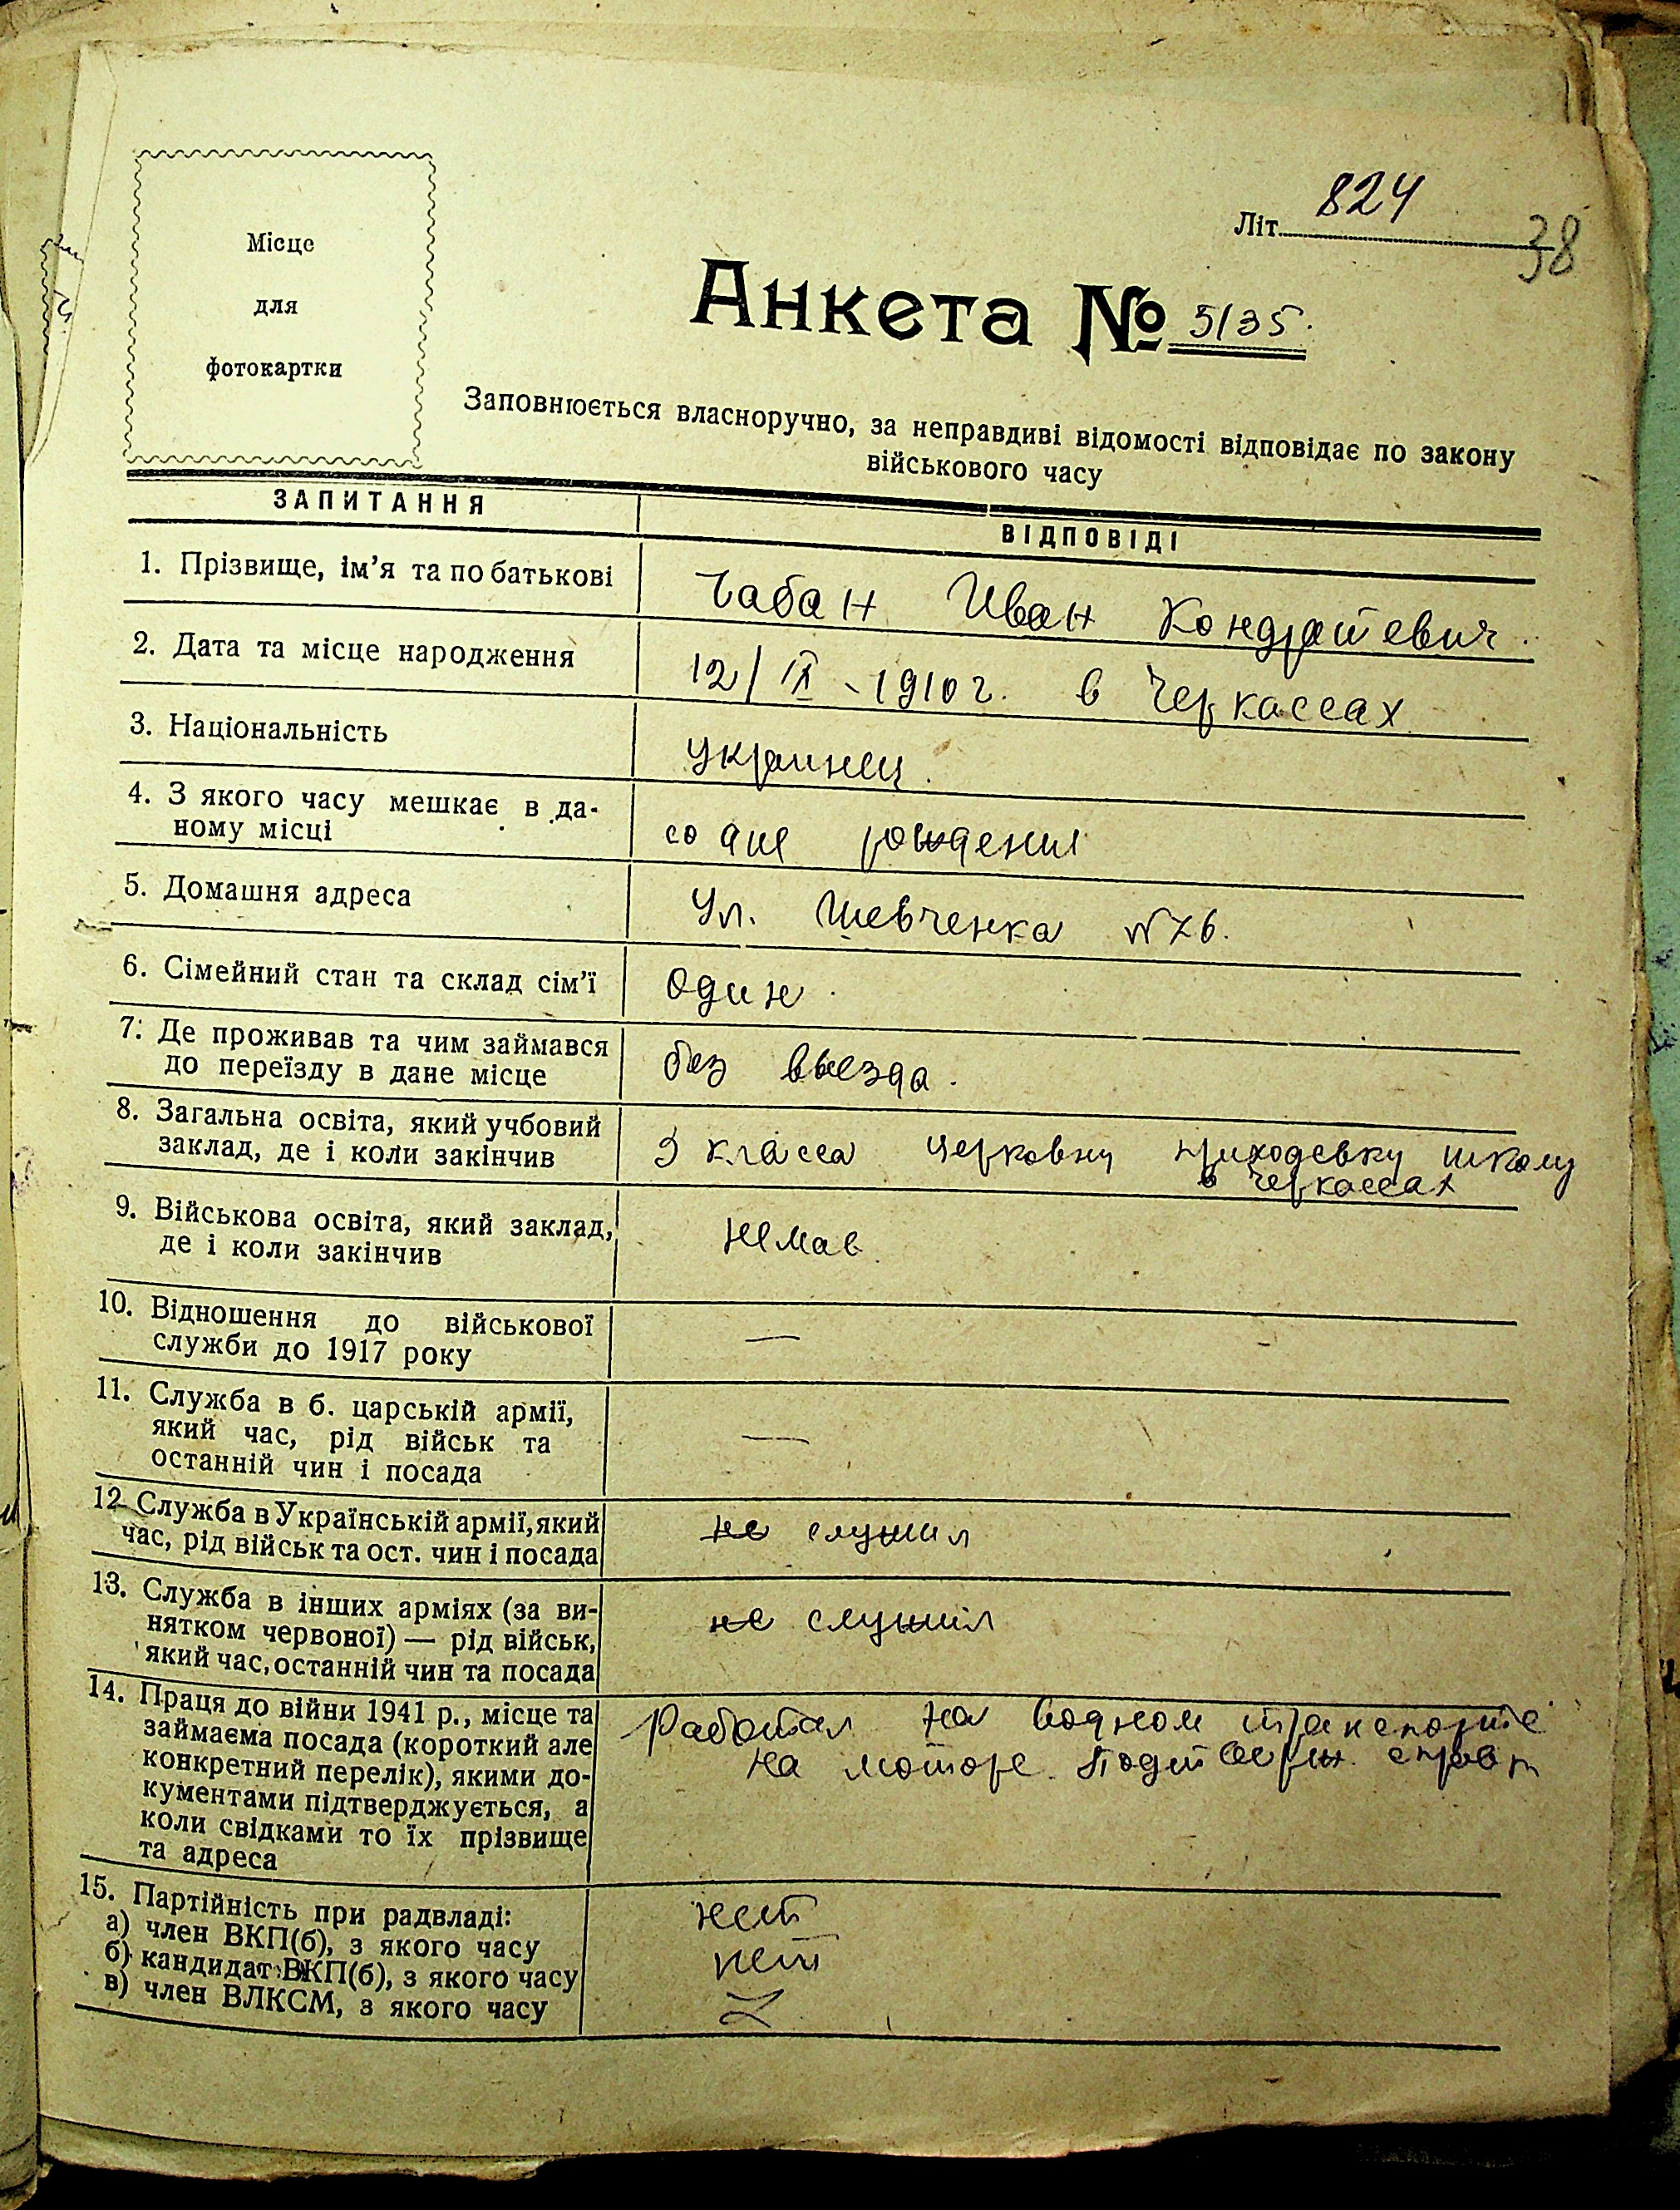 Місце
для
фотокартки
Літ. 824
38
Анкета № 5/35.
Заповнюється власноручно, за неправдиві відомості відповідає по закону
військового часу
ЗАПИТАННЯ
ВІДПОВІДІ
1. Прізвище, ім'я та по батькові
Чабан Иван Кондратевич.
2. Дата та місце народження
12/IX - 1910 г. в Черкассах
3. Національність
украинец.
4. З якого часу мешкає в да-
ному місці
со дня рождения
5. Домашня адреса
Ул. Шевченка №76.
6. Сімейний стан та склад сім'ї
Один.
7. Де проживав та чим займався
до переїзду в дане місце
без выезда.
8. Загальна освіта, який учбовий
заклад, де і коли закінчив
3 класса церковну приходскву школу
в Черкассах
9. Військова освіта, який заклад,
де і коли закінчив
немав
10. Відношення до військової
служби до 1917 року
—
11. Служба в б. царській армії,
який час, рід військ та
останній чин і посада
—
12. Служба в Українській армії, який
час, рід військ та ост. чин і посада
не служил
13. Служба в інших арміях (за ви-
нятком червоної) — рід військ,
який час, останній чин та посада
не служил
14. Праця до війни 1941 р., місце та
займаєма посада (короткий але
конкретний перелік), якими до-
кументами підтверджується, а
коли свідками то їх прізвище
та адреса
Работал на водном транспорте
на моторе.
15. Партійність при радвладі:
а) член ВКП(б), з якого часу
нет
б) кандидат ВКП(б), з якого часу
нет
в) член ВЛКСМ, з якого часу